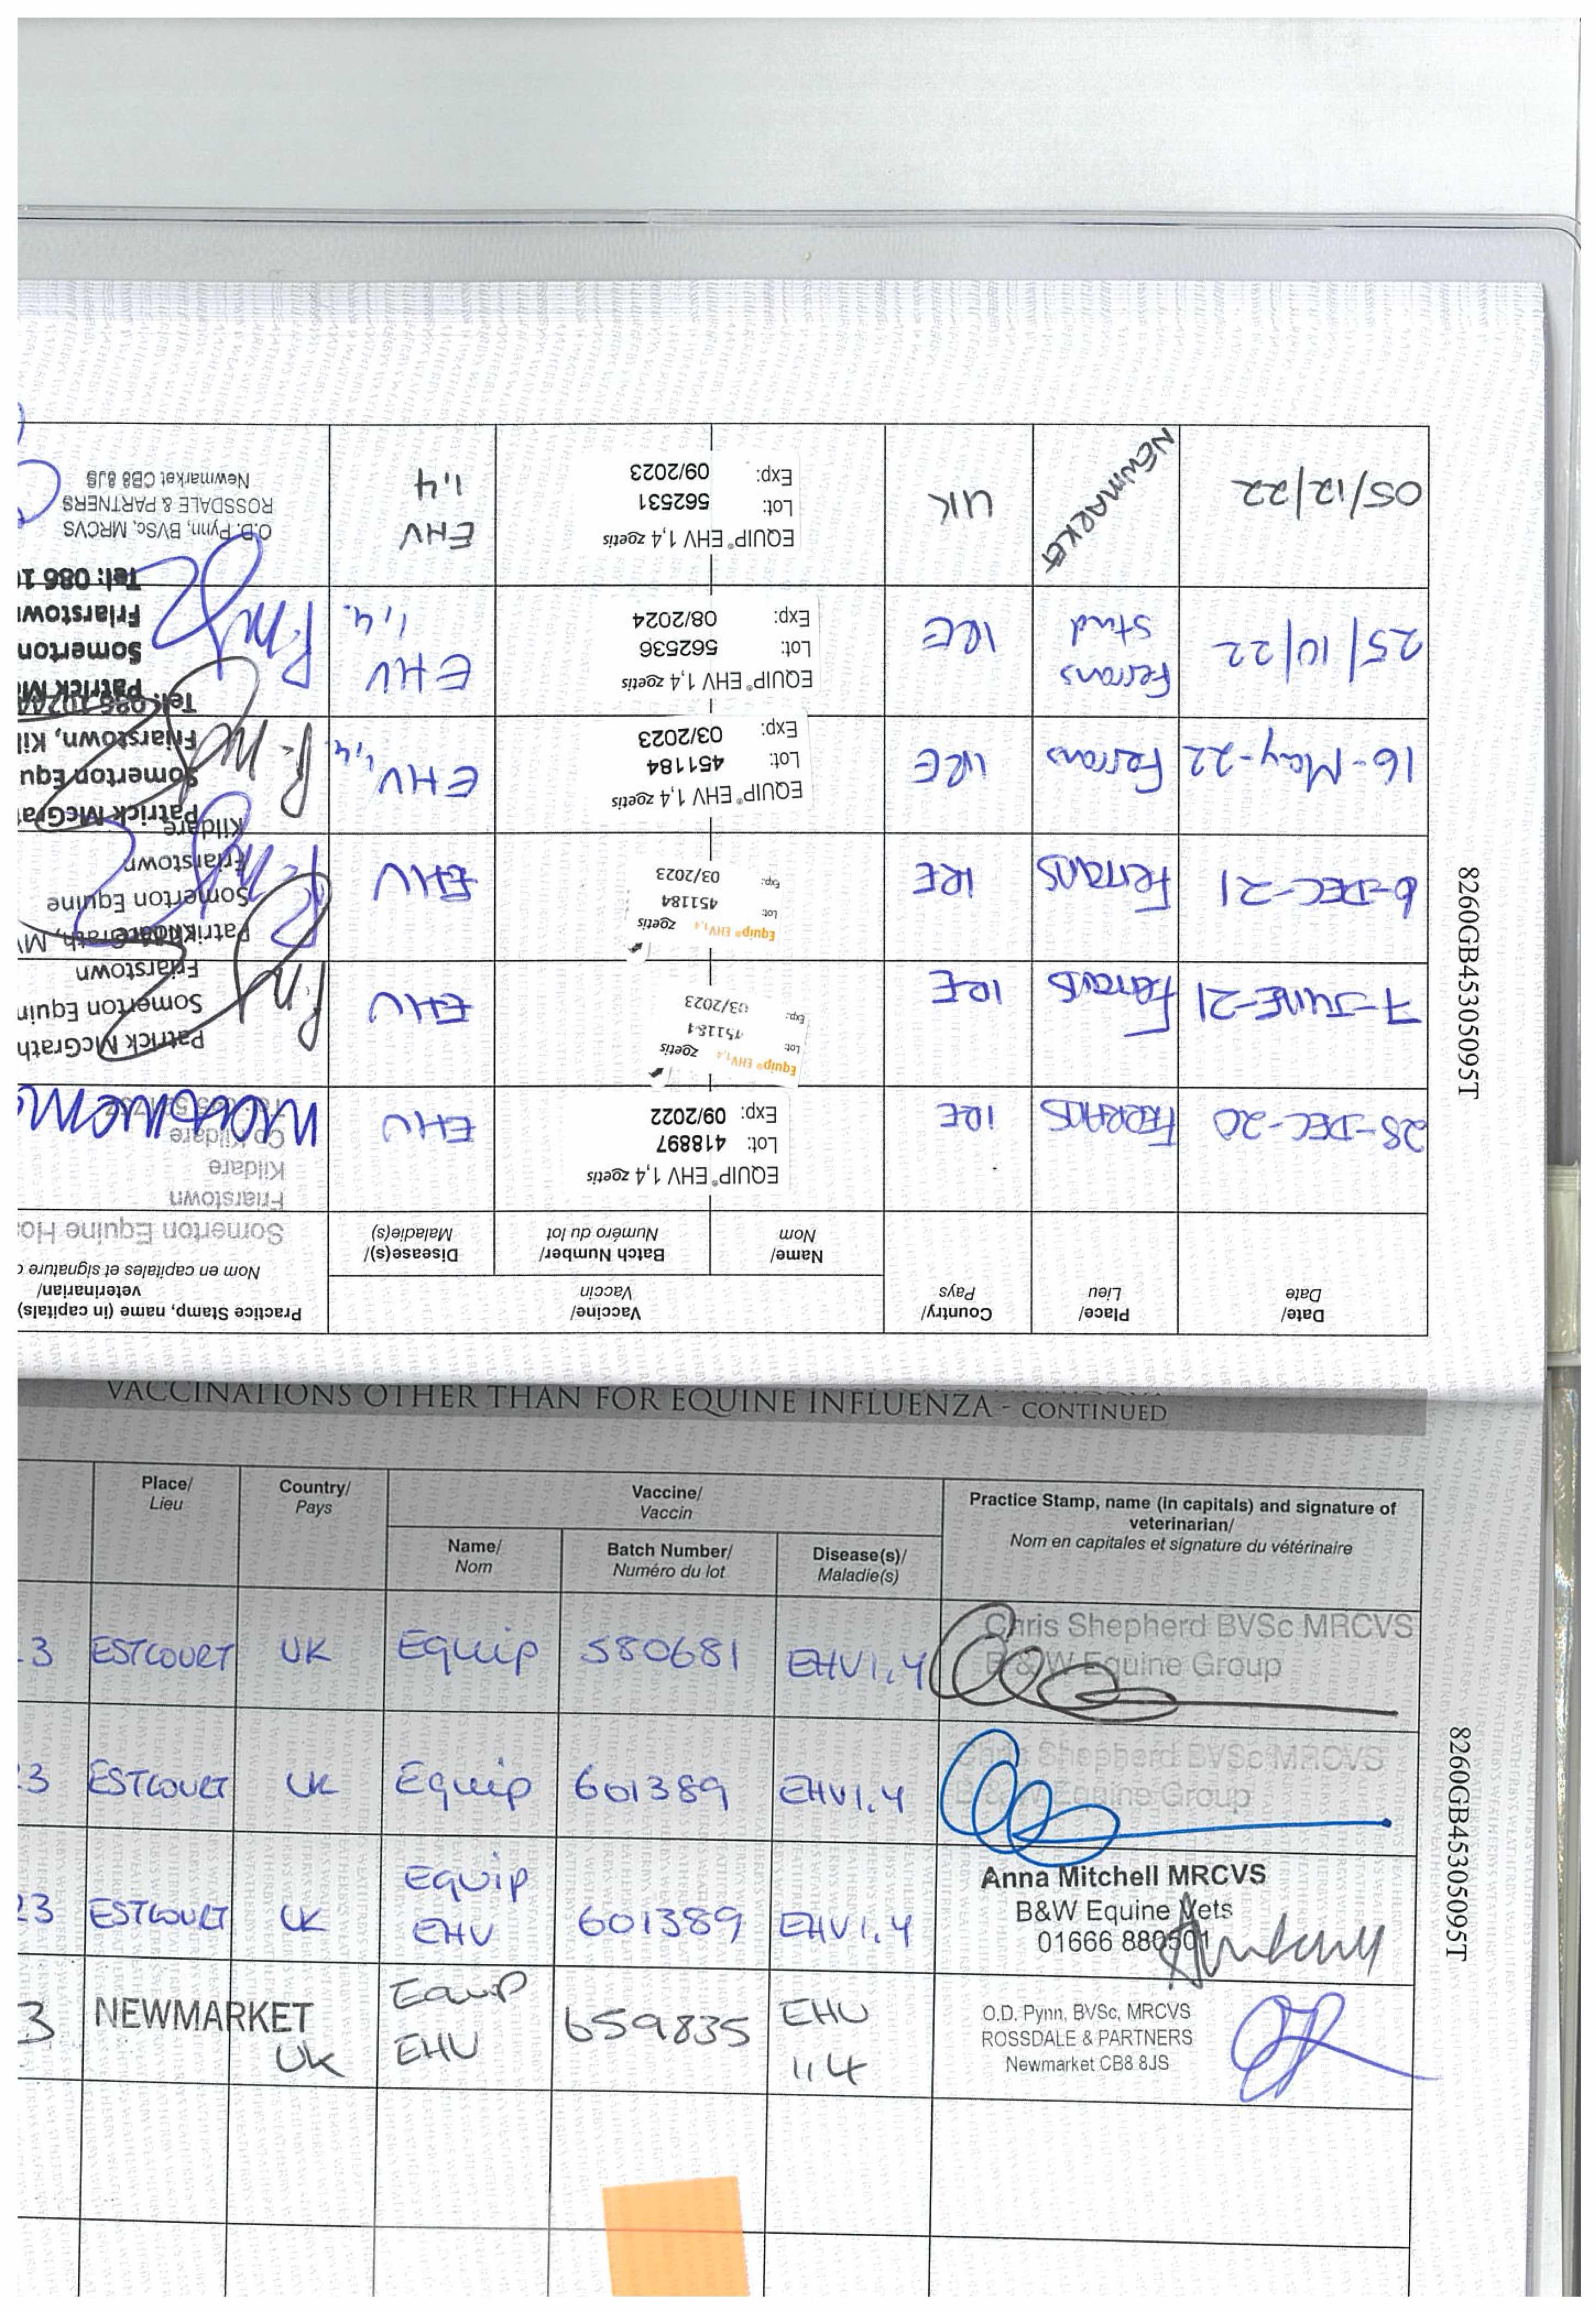 Date/
Date
Place/
Lieu
Country/
Pays
Vaccine/
Vaccin
Name/
Nom
Batch Number/
Numéro du lot
Disease(s)/
Maladie(s)
Practice Stamp, name (in capitals)
veterinarian/
Nom en capitales et signature
28-DEC-20 FERRANS IRE EQUIP® EHV 1,4 zoetis EHV Somerton Equine Ho
Lot: 418897 Friarstown
Exp: 09/2022 Kildare
Co Kildare
7-JUNE-21 Ferrans IRE Equip® EHV 1,4 zoetis EHV Patrick McGrath
Lot: Somerton Equin
Exp: 03/2023 Friarstown
6-DEC-21 Ferrans IRE Equip® EHV 1,4 zoetis EHV Patrick McGrath, MV
Lot: 451184 Somerton Equine
Exp: 03/2023 Friarstown
Kildare
16-May-22 Ferrans IRE EQUIP® EHV 1,4 zoetis EHV 1,4 Patrick McGra
Lot: 451184 Somerton Equ
Exp: 03/2023 Friarstown, Kil
25/10/22 Ferrans Stud IRE EQUIP® EHV 1,4 zoetis EHV 1,4. Patrick M
Lot: 562536 Somerton
Exp: 08/2024 Friarstow
Tel: 086 1
05/12/22 NEWMARKET UK EQUIP® EHV 1,4 zoetis EHV 1,4 O.D. Pynn, BVSc, MRCVS
Lot: 562531 ROSSDALE & PARTNERS
Exp: 09/2023 Newmarket CB8 8JS
8260GB45305095T
VACCINATIONS OTHER THAN FOR EQUINE INFLUENZA - CONTINUED
Place/
Lieu
Country/
Pays
Vaccine/
Vaccin
Name/
Nom
Batch Number/
Numéro du lot
Disease(s)/
Maladie(s)
Practice Stamp, name (in capitals) and signature of
veterinarian/
Nom en capitales et signature du vétérinaire
3 ESTCOURT UK Equip 580681 EHV1.4 Chris Shepherd BVSc MRCVS
B & W Equine Group
3 ESTCOURT UK Equip 601389 EHV1.4 Chris Shepherd BVSc MRCVS
B & W Equine Group
23 ESTCOURT UK Equip EHV 601389 EHV1.4 Anna Mitchell MRCVS
B&W Equine Vets
01666 880501
3 NEWMARKET UK Equip EHV 659835 EHV 1,4 O.D. Pynn, BVSc, MRCVS
ROSSDALE & PARTNERS
Newmarket CB8 8JS
8260GB45305095T